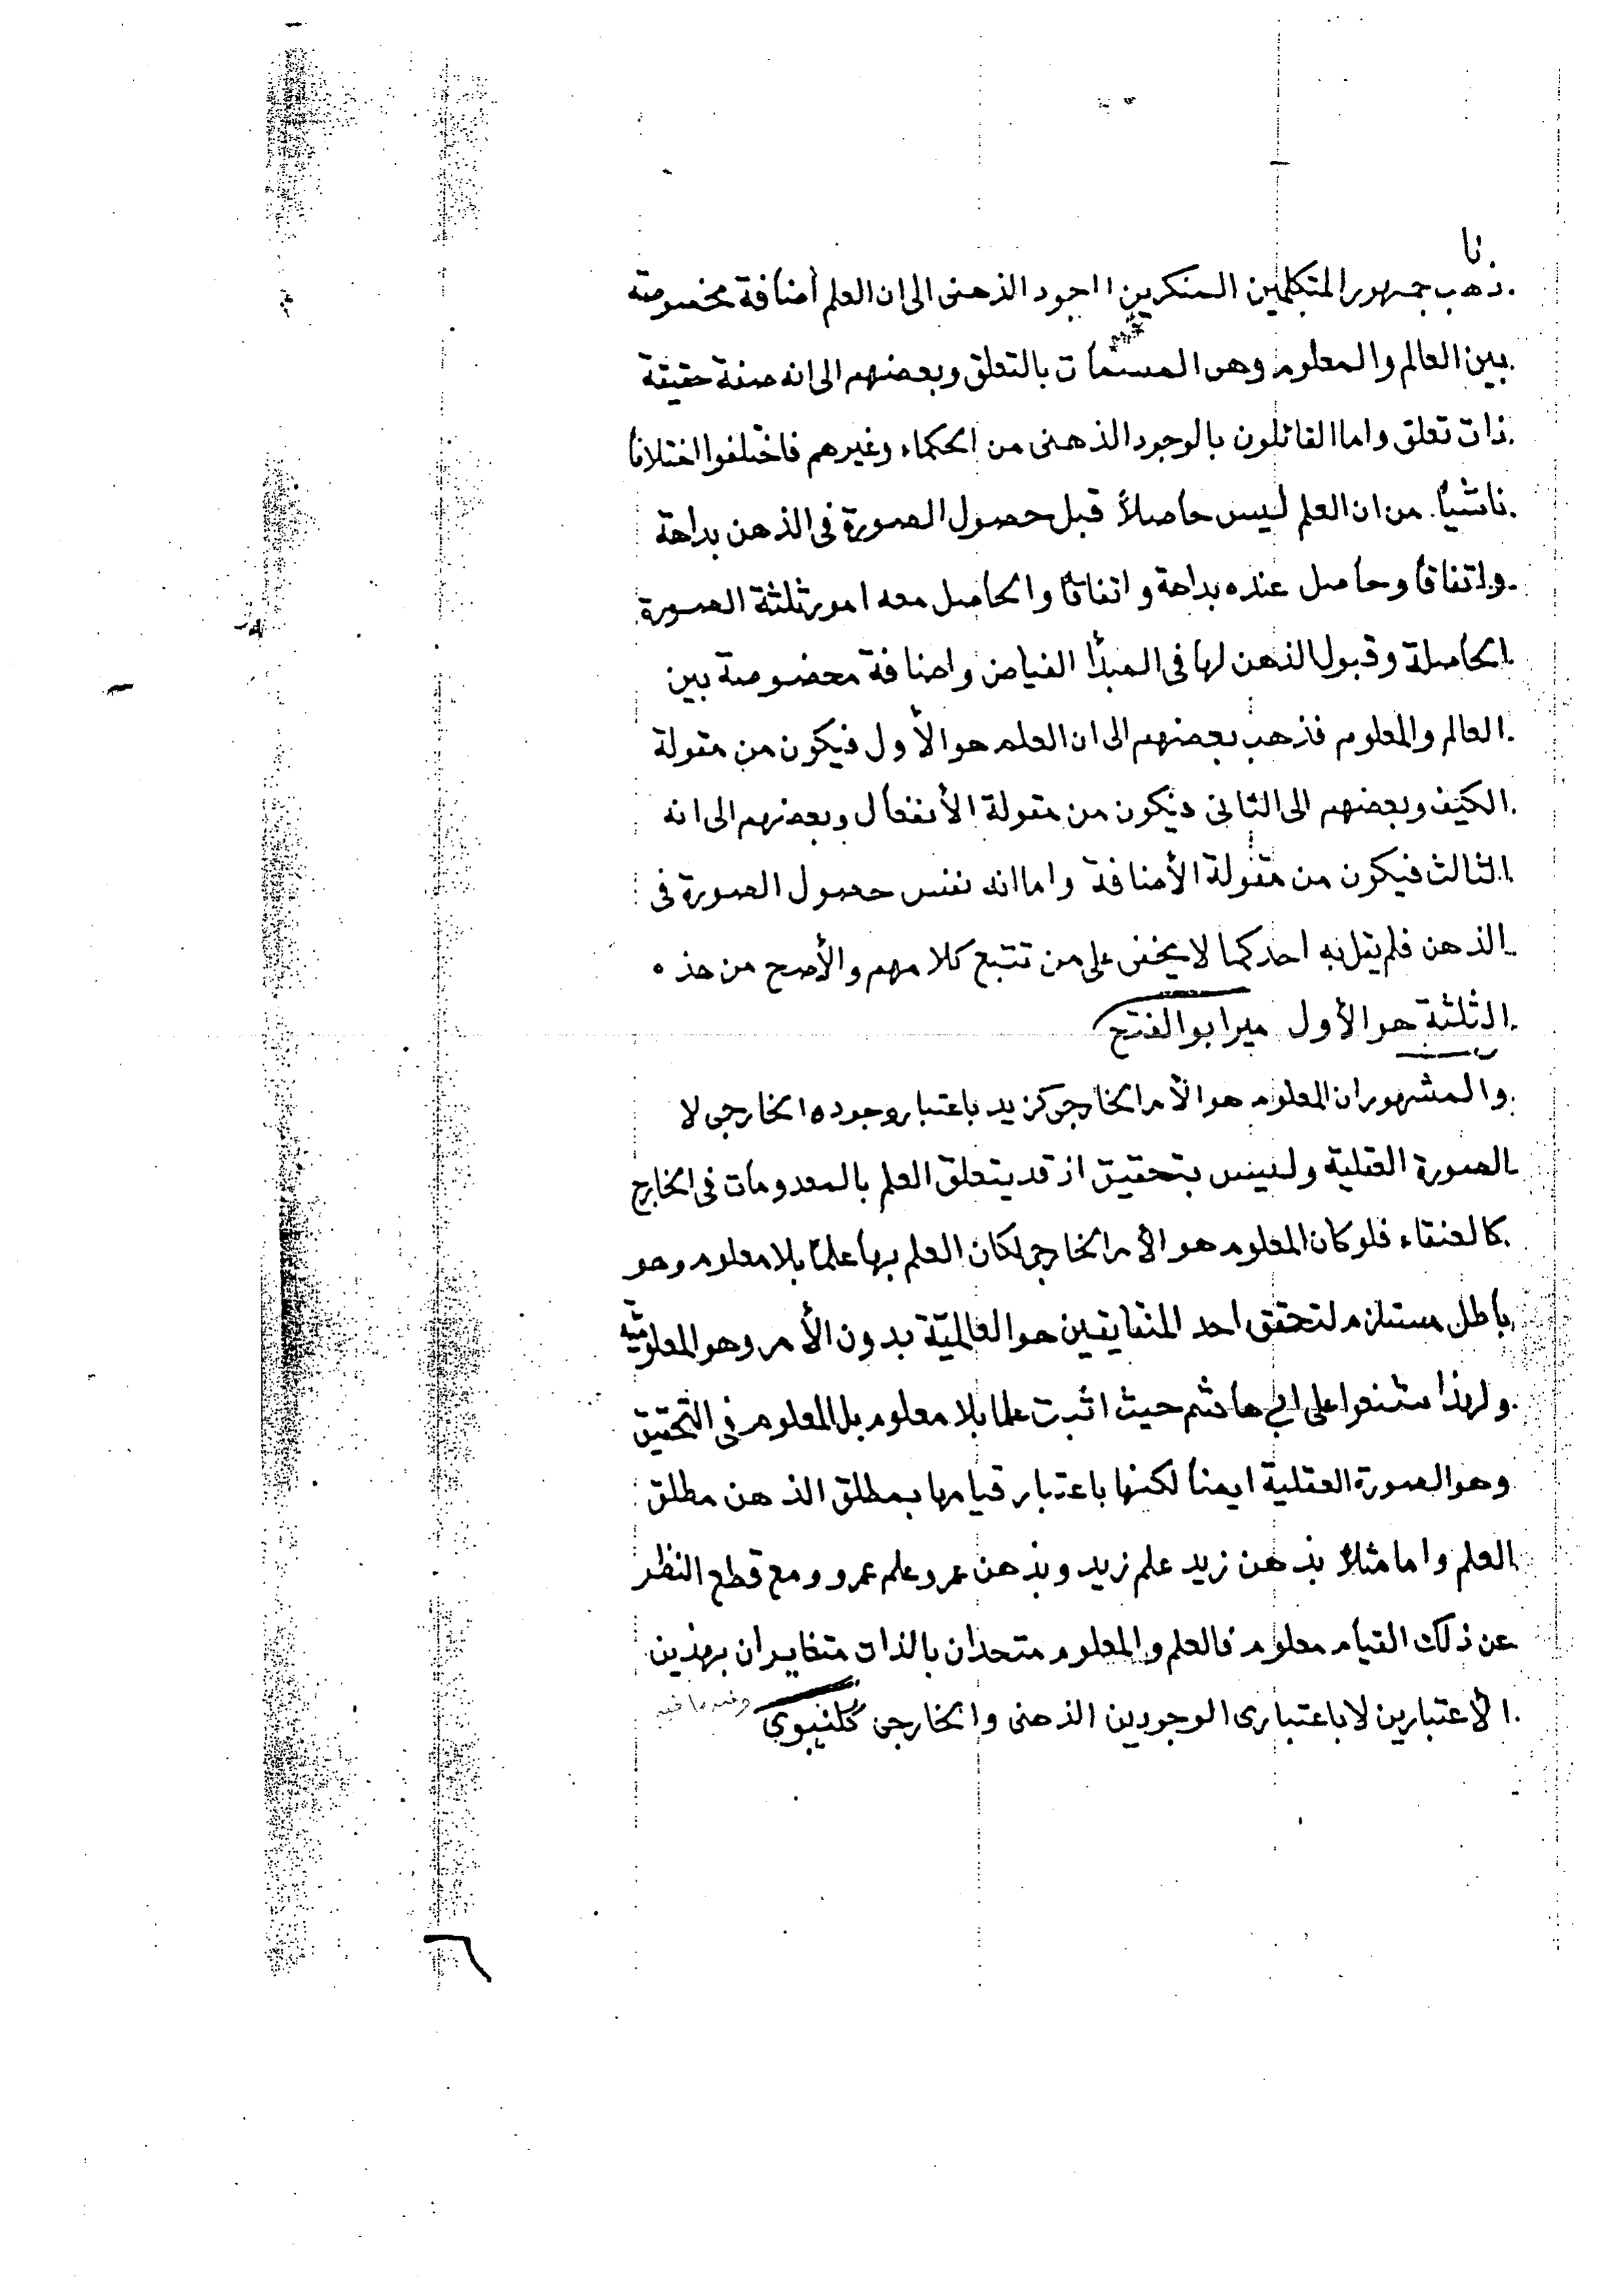 نا
ذهب جمهور المتكلمين المنكرين ااجود الذهنى الى ان العلم أضافة مخصوصة
بين العالم والمعلوم وهى المسمات بالتعلق وبعضهم الى انه صفة حقيقة
ذات تعلق واما القائلون بالوجود الذهنى من الحكماء وغيرهم فاختلفوا اختلافا
ناشئيًا من ان العلم ليس حاصلاً قبل حصول الصورة فى الذهن بداهة
واتفاقا وحاصل عنده بداهة و اتفاقا والحاصل معه امور ثلثة الصورة
الحاصلة وقبول الذهن لها فى المبدأ الفياض واضافة مخصوصة بين
العالم والمعلوم فذهب بعضهم الى ان العلم هو الأول فيكون من مقولة
الكيف وبعضهم الى الثانى فيكون من مقولة الأنفعال وبعضهم الى انه
الثالث فيكون من مقولة الأضافة واما انه نفس حصول الصورة فى
الذهن فلم يقل به احد كما لا يخفى على من تتبع كلامهم والأصح من هذه
الثلثة هو الأول ميرابو الفتح
والمشهور ان المعلوم هو الأمر الخارجى كزيد باعتبار وجوده الخارجى لا
الصورة العقلية وليس بتحقيق اذ قد يتعلق العلم بالمعدومات فى الخارج
كالعنقاء فلو كان المعلوم هو الأمر الخارجى لكان العلم بها علمًا بلا معلوم وهو
باطل مستلزم لتحقق احد المتضايفين هو العالميّة بدون الأمر وهو المعلوميّة
ولهذا شنعوا على ابى هاشم حيث اثبت علما بلا معلوم بل المعلوم فى التحقيق
وهو الصورة العقلية ايضا لكنها باعتبار قيامها بمطلق الذهن مطلق
العلم واما مثلاً بذهن زيد علم زيد وبذهن عمرو علم عمرو ومع قطع النظر
عن ذلك القيام معلوم فالعلم والمعلوم متحدان بالذات متغايران بهذين
الأعتبارين لا باعتبارى الوجودين الذهنى والخارجى گلنبوي وفيه ما فيه